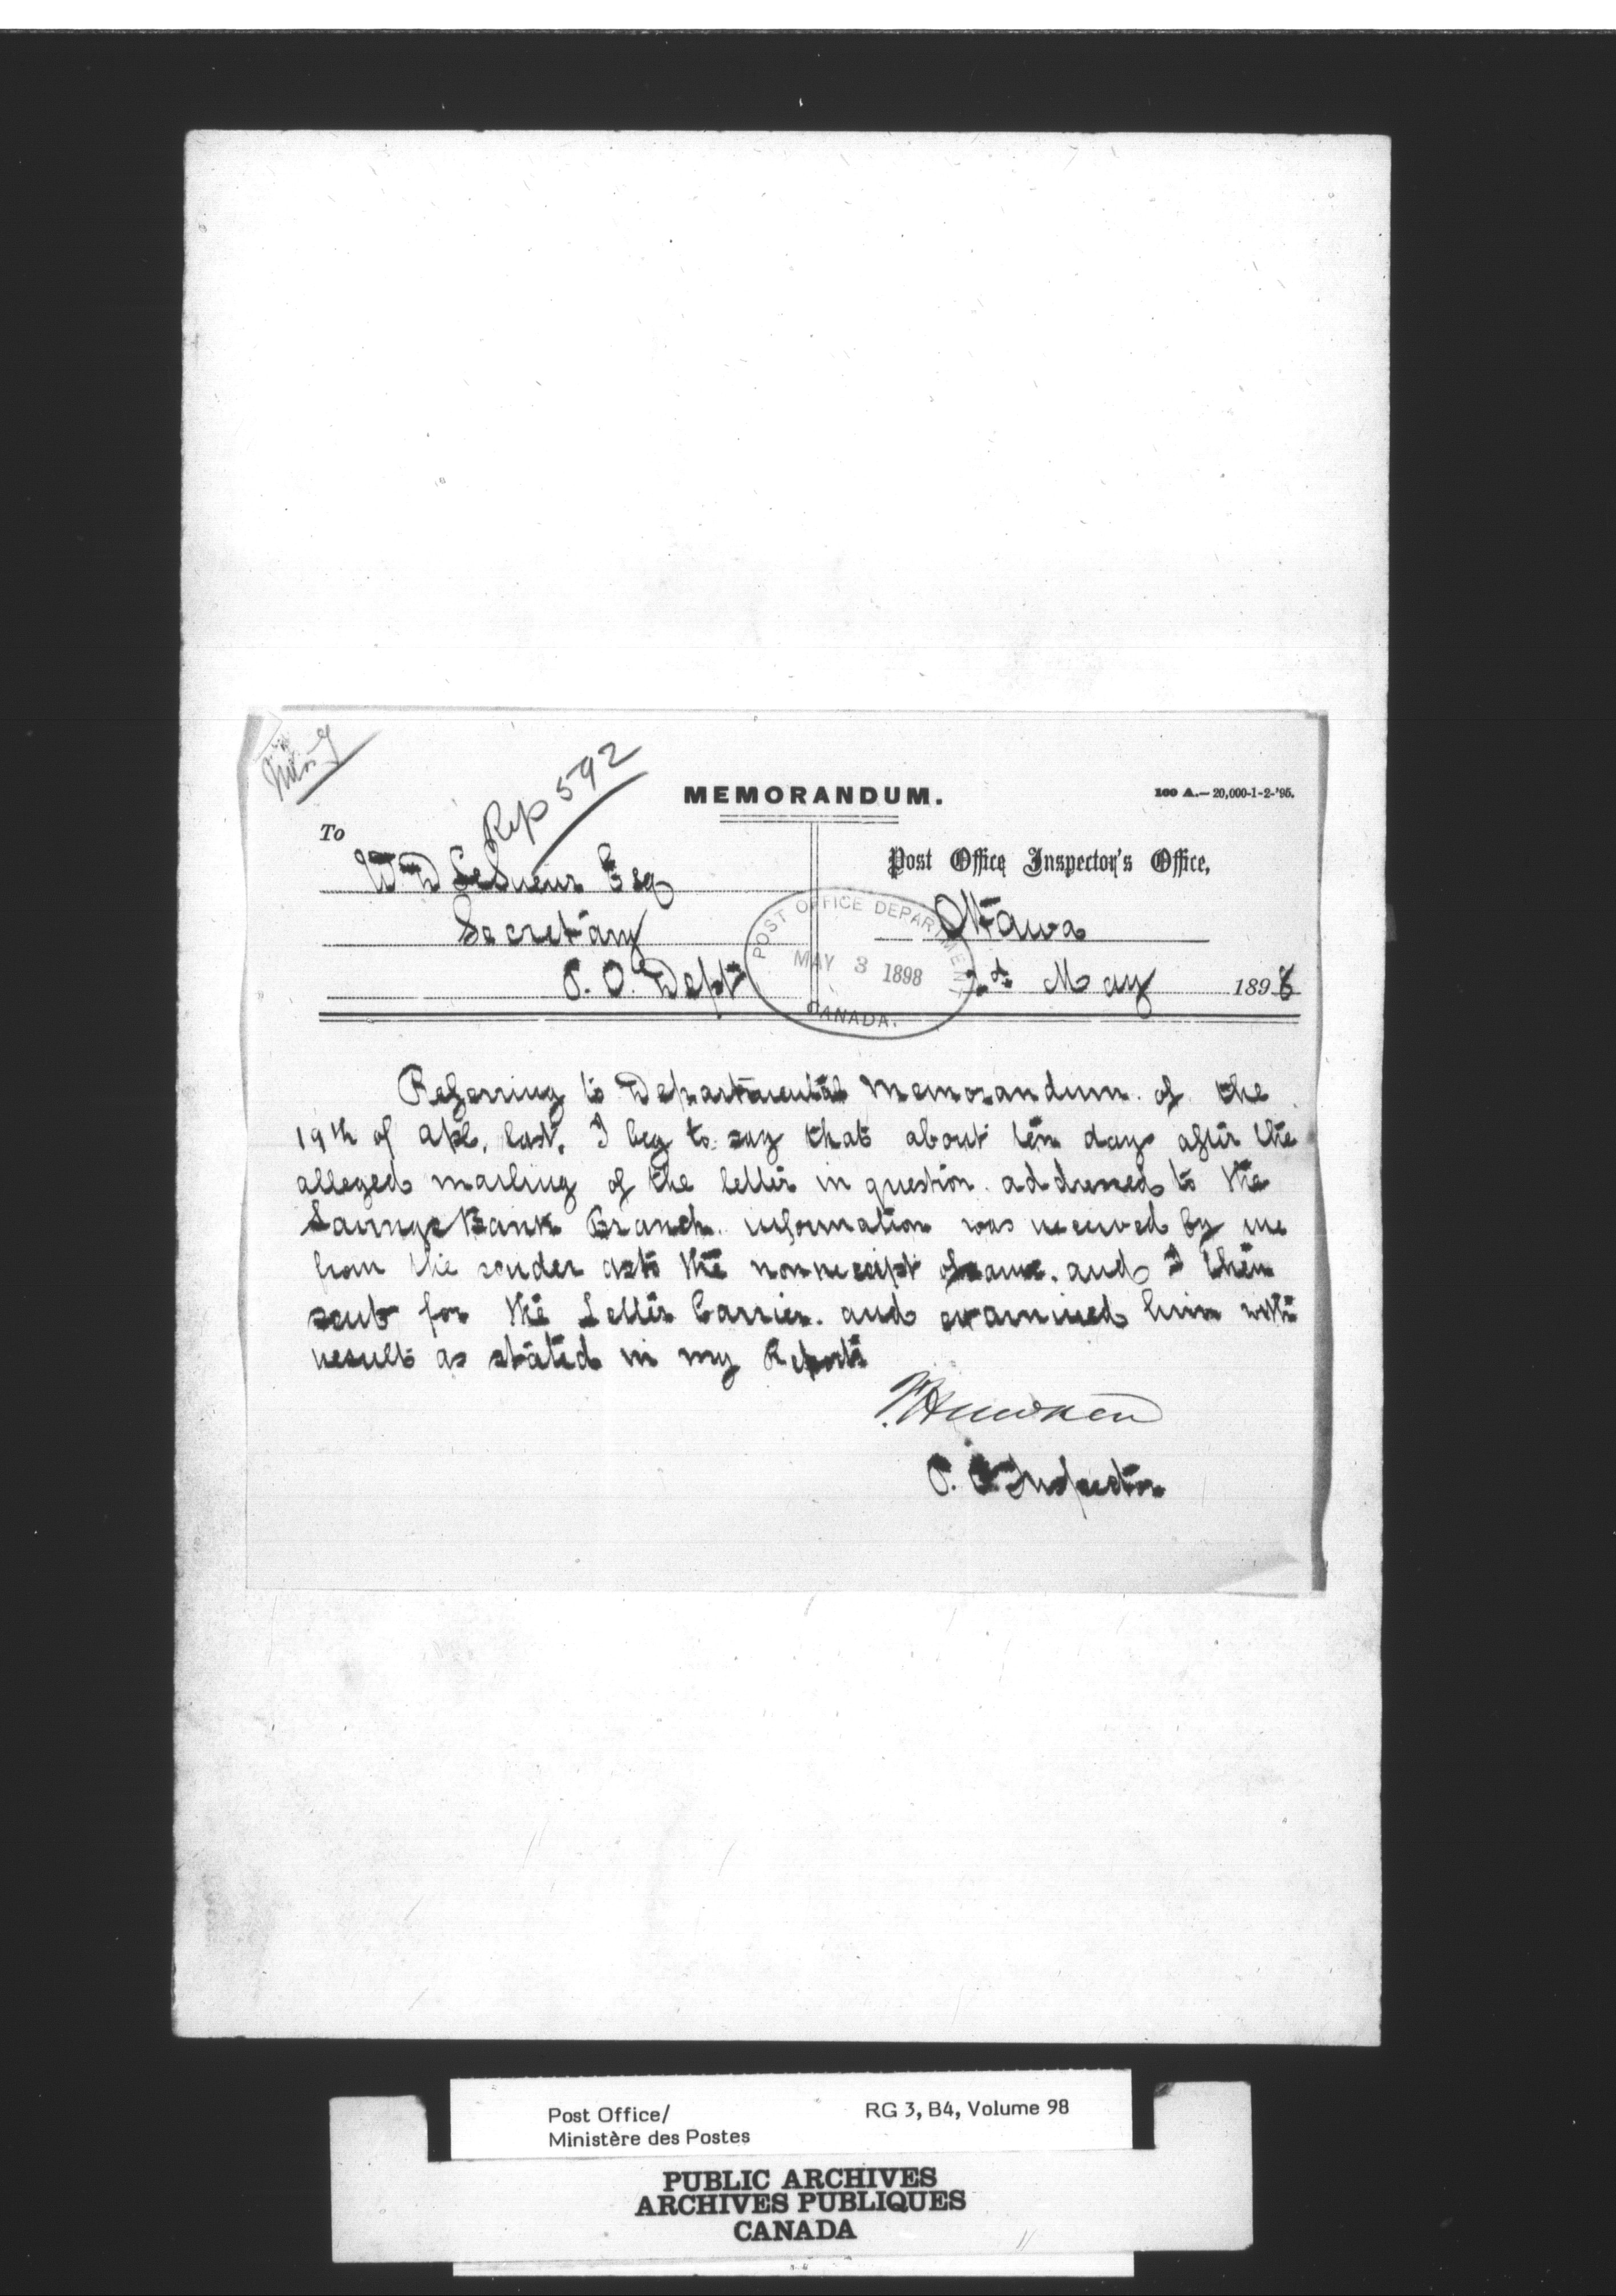 Rep 592
MEMORANDUM.
100 A.—20,000-1-2-'95.
To
W D LeSueur Esq
Secretary
P. O. Dept
Post Office Inspector's Office,
Ottawa
2nd May 1898
POST OFFICE DEPARTMENT
MAY 3 1898
CANADA.
Referring to Departmental Memorandum of the
19th of Apl. last, I beg to say that about ten days after the
alleged mailing of the letter in question addressed to the
Savings Bank Branch information was received by me
from the sender as to the nonreceipt of same, and I then
sent for the Letter Carrier and examined him with
result as stated in my Report
P. O Inspector
Post Office/
Ministère des Postes
RG 3, B4, Volume 98
PUBLIC ARCHIVES
ARCHIVES PUBLIQUES
CANADA